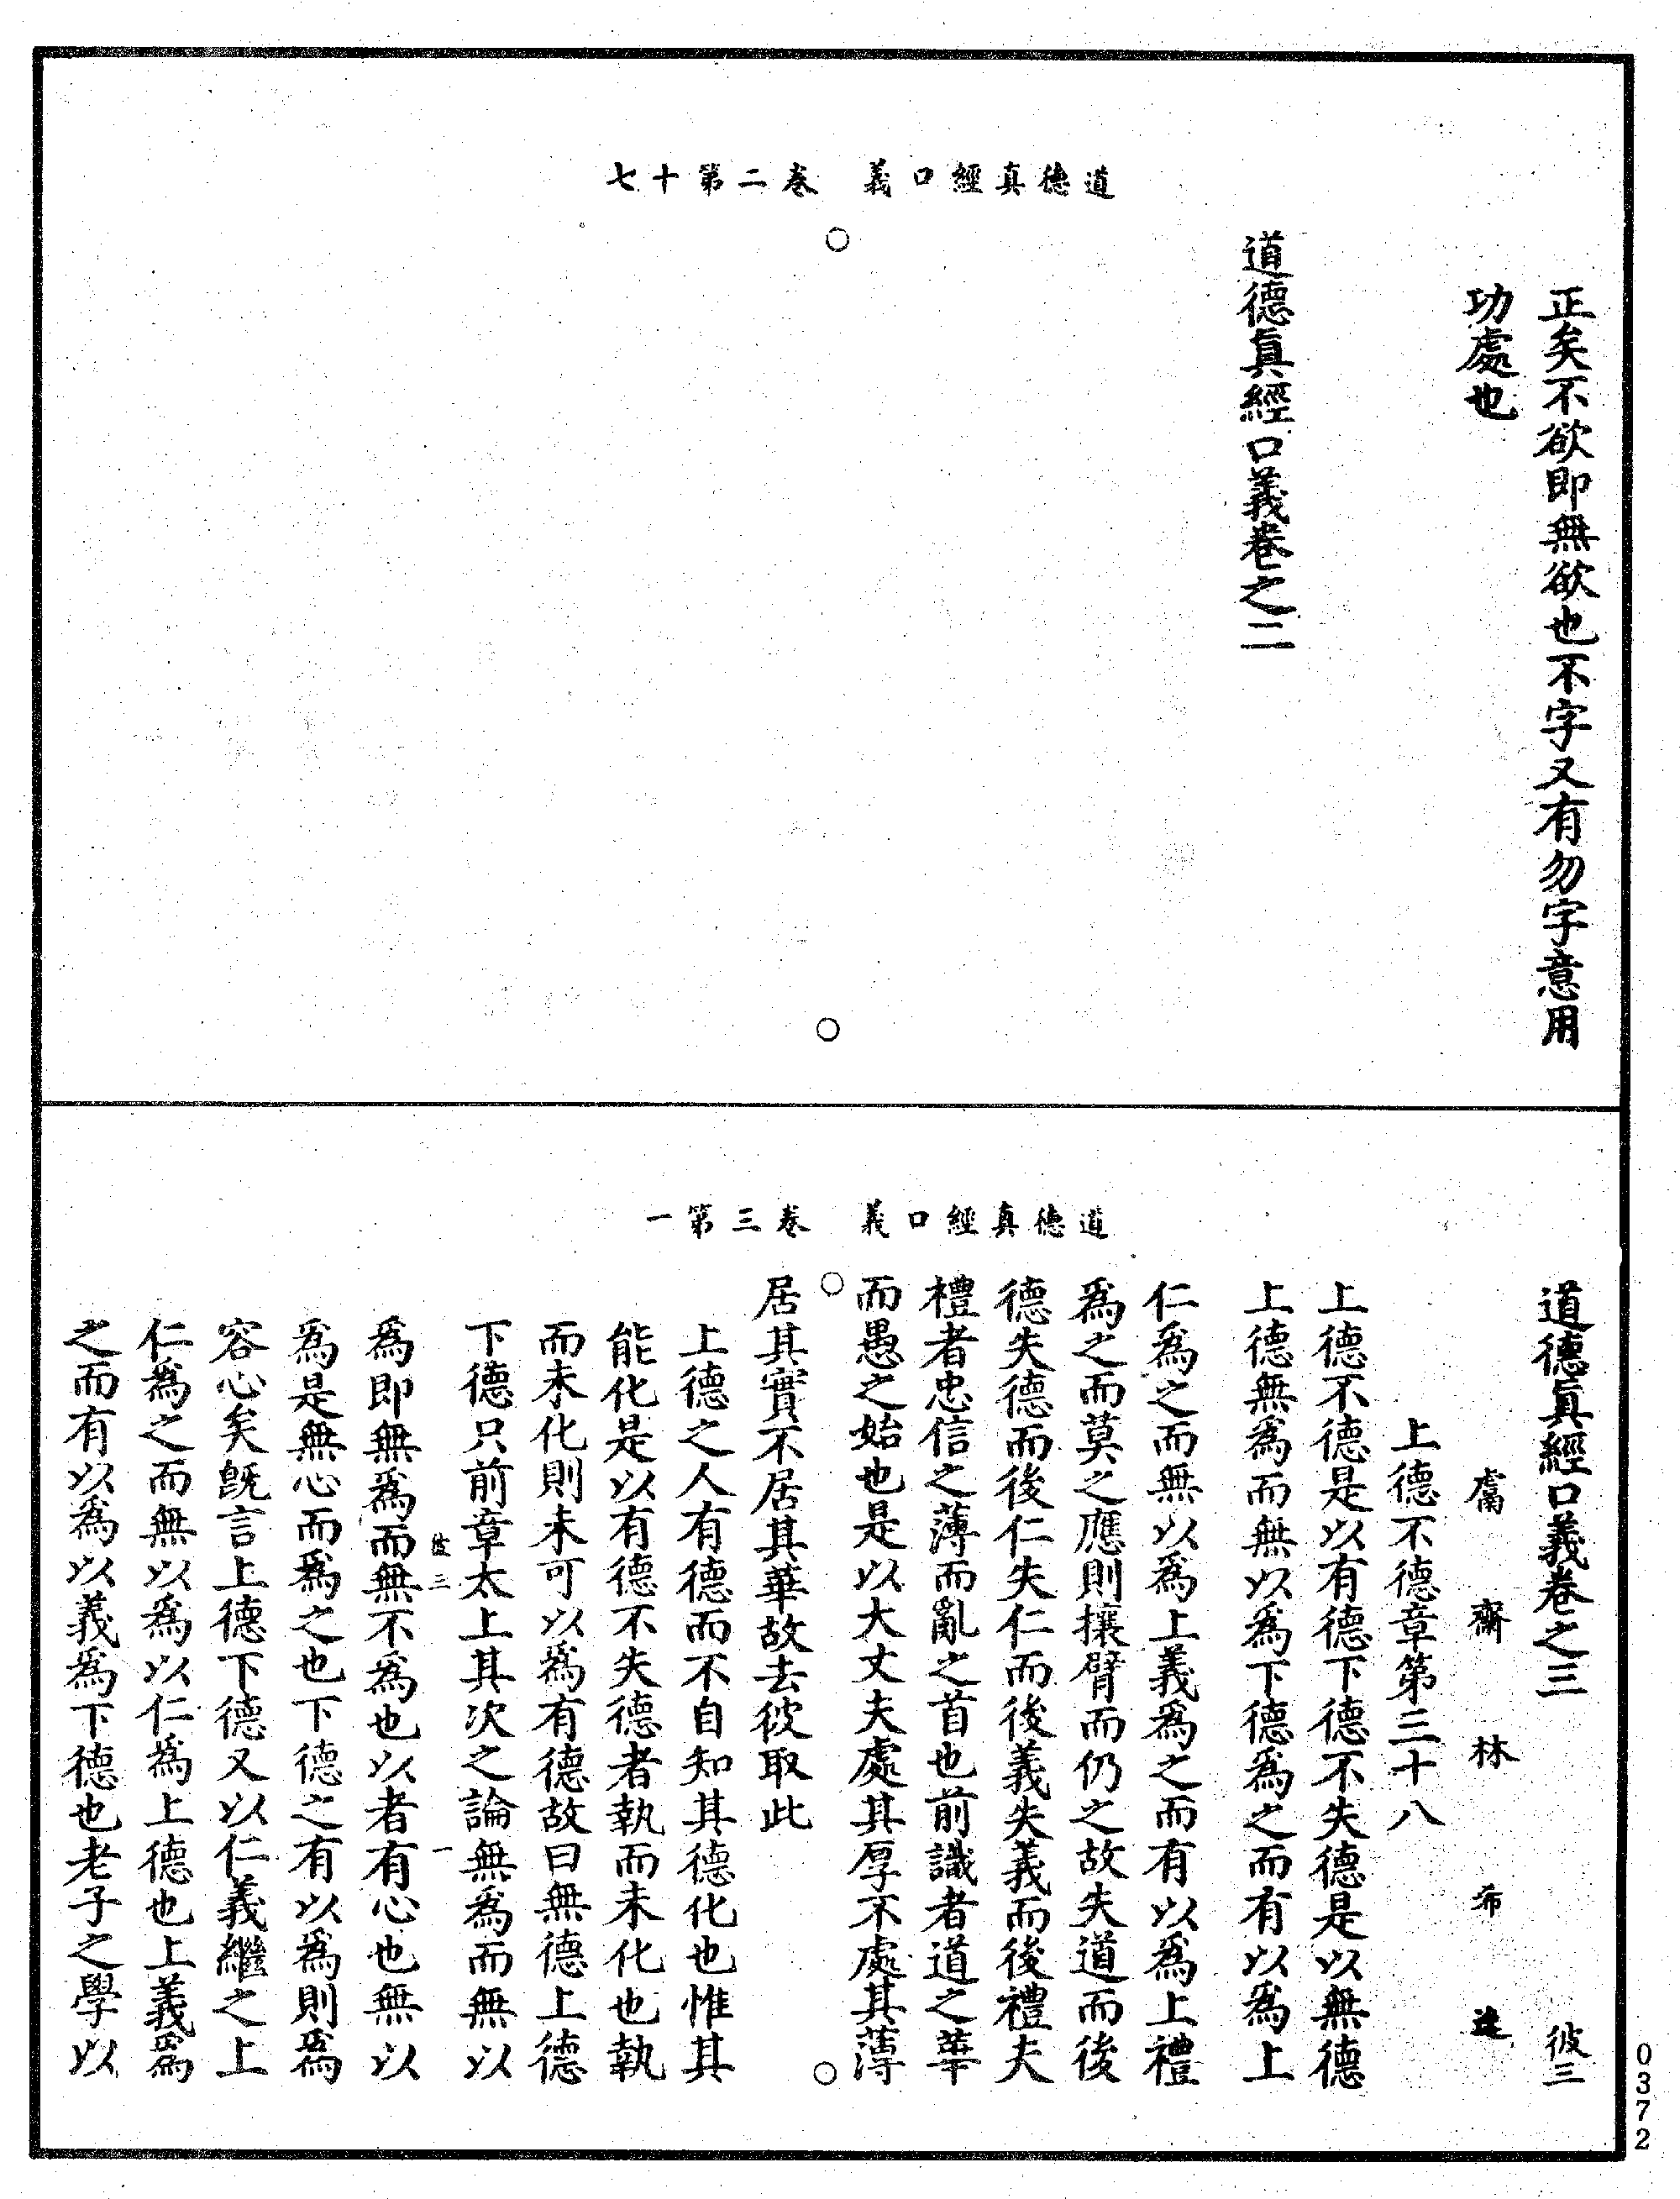 道德真經口義　卷二第十七
正矣不欲即無欲也不字又有勿字意用
功處也
道德眞經口義卷之二
道德真經口義　卷三第一
道德眞經口義卷之三　彼三
鬳齋林希逸
上德不德章第三十八
上德不德是以有德下德不失德是以無德
上德無爲而無以爲下德爲之而有以爲上
仁爲之而無以爲上義爲之而有以爲上禮
爲之而莫之應則攘臂而仍之故失道而後
德失德而後仁失仁而後義失義而後禮夫
禮者忠信之薄而亂之首也前識者道之華
而愚之始也是以大丈夫處其厚不處其薄
居其實不居其華故去彼取此
上德之人有德而不自知其德化也惟其
能化是以有德不失德者執而未化也執
而未化則未可以爲有德故曰無德上德
下德只前章太上其次之論無爲而無以
彼三　一
爲即無爲而無不爲也以者有心也無以
爲是無心而爲之也下德之有以爲則爲
容心矣旣言上德下德又以仁義繼之上
仁爲之而無以爲以仁爲上德也上義爲
之而有以爲以義爲下德也老子之學以
0372